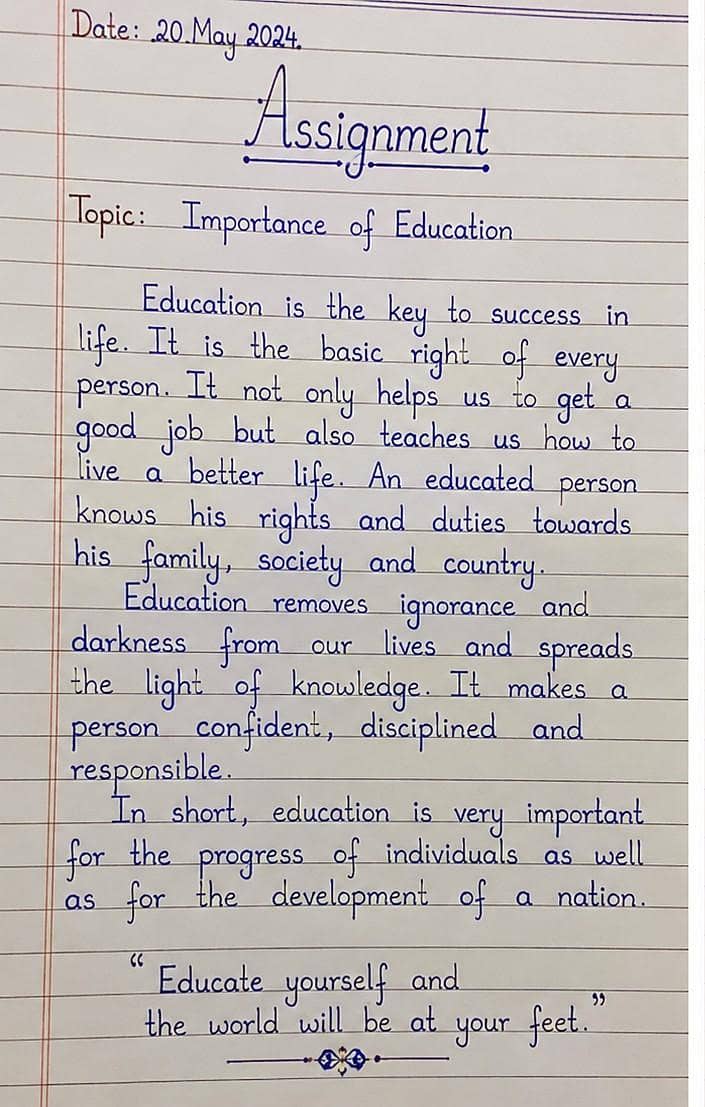 Date: 20 May 2024.
Assignment
Topic: Importance of Education
Education is the key to success in
life. It is the basic right of every
person. It not only helps us to get a
good job but also teaches us how to
live a better life. An educated person
knows his rights and duties towards
his family, society and country.
Education removes ignorance and
darkness from our lives and spreads
the light of knowledge. It makes a
person confident, disciplined and
responsible.
In short, education is very important
for the progress of individuals as well
as for the development of a nation.
“ Educate yourself and
the world will be at your feet.”